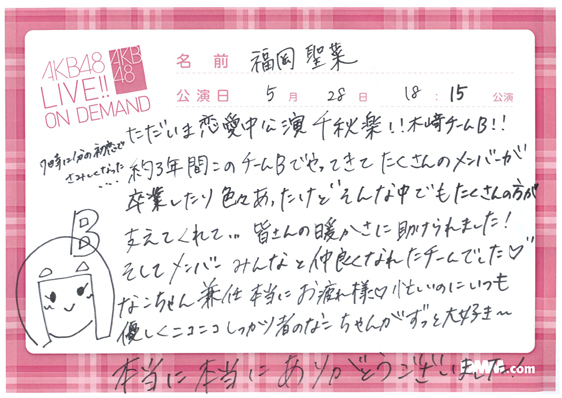 AKB48
LIVE!!
ON DEMAND
AKB
48
名前 福岡 聖菜
公演日 5月 28日 18:15 公演
ただいま恋愛中公演千秋楽!!木﨑チームB!!
さみしくなった
....
約3年間このチームBでやってきてたくさんのメンバーが
卒業したり色々あったけどそんな中でもたくさんの方が
支えてくれて... 皆さんの暖かさに助けられました!
そしてメンバーみんなと仲良くなれたチームでした♡
B
なこちゃん兼任本当にお疲れ様♡忙しいのにいつも
優しくニコニコしっかり者のなこちゃんがずっと大好き〜
本当に本当にありがとうございました!
.com